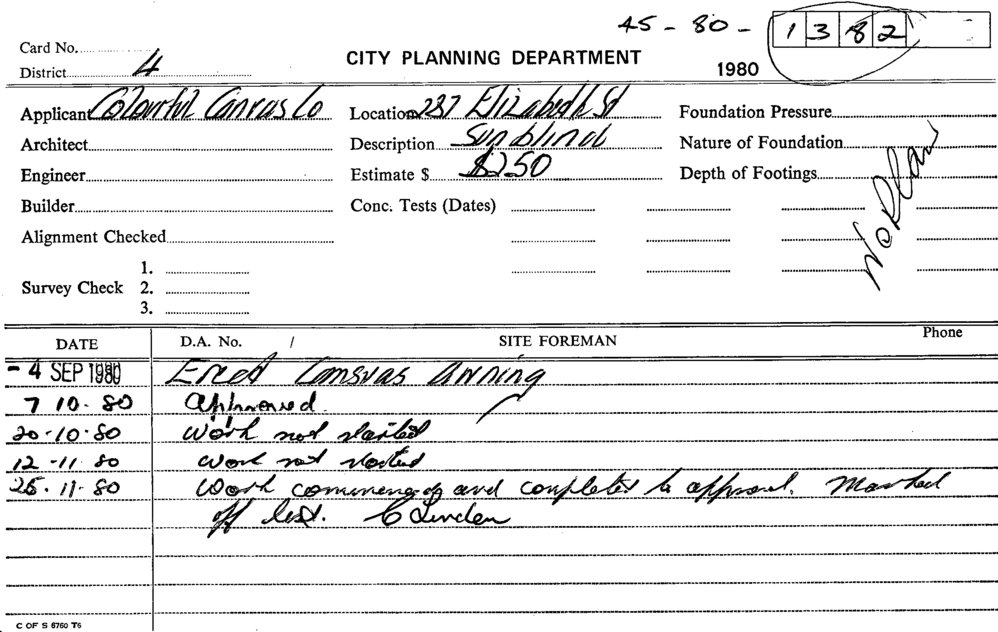 45 - 80 - 1382
Card No.
District 4
CITY PLANNING DEPARTMENT
1980
Applicant Colourful Canvas Co Location 237 Elizabeth St Foundation Pressure
Architect Description Sunblind Nature of Foundation
Engineer Estimate $ $250 Depth of Footings
No Plan
Builder Conc. Tests (Dates)
Alignment Checked
1.
Survey Check 2.
3.
DATE D.A. No. / SITE FOREMAN Phone
- 4 SEP 1980 Erect Cansvas Awning
7 10 - 80 approved.
20 - 10 - 80 work not started
12 - 11 - 80 work not started
25 - 11 - 80 Work commenced and completed to approval. Marked
off list. C Linden
C OF S 6760 T6